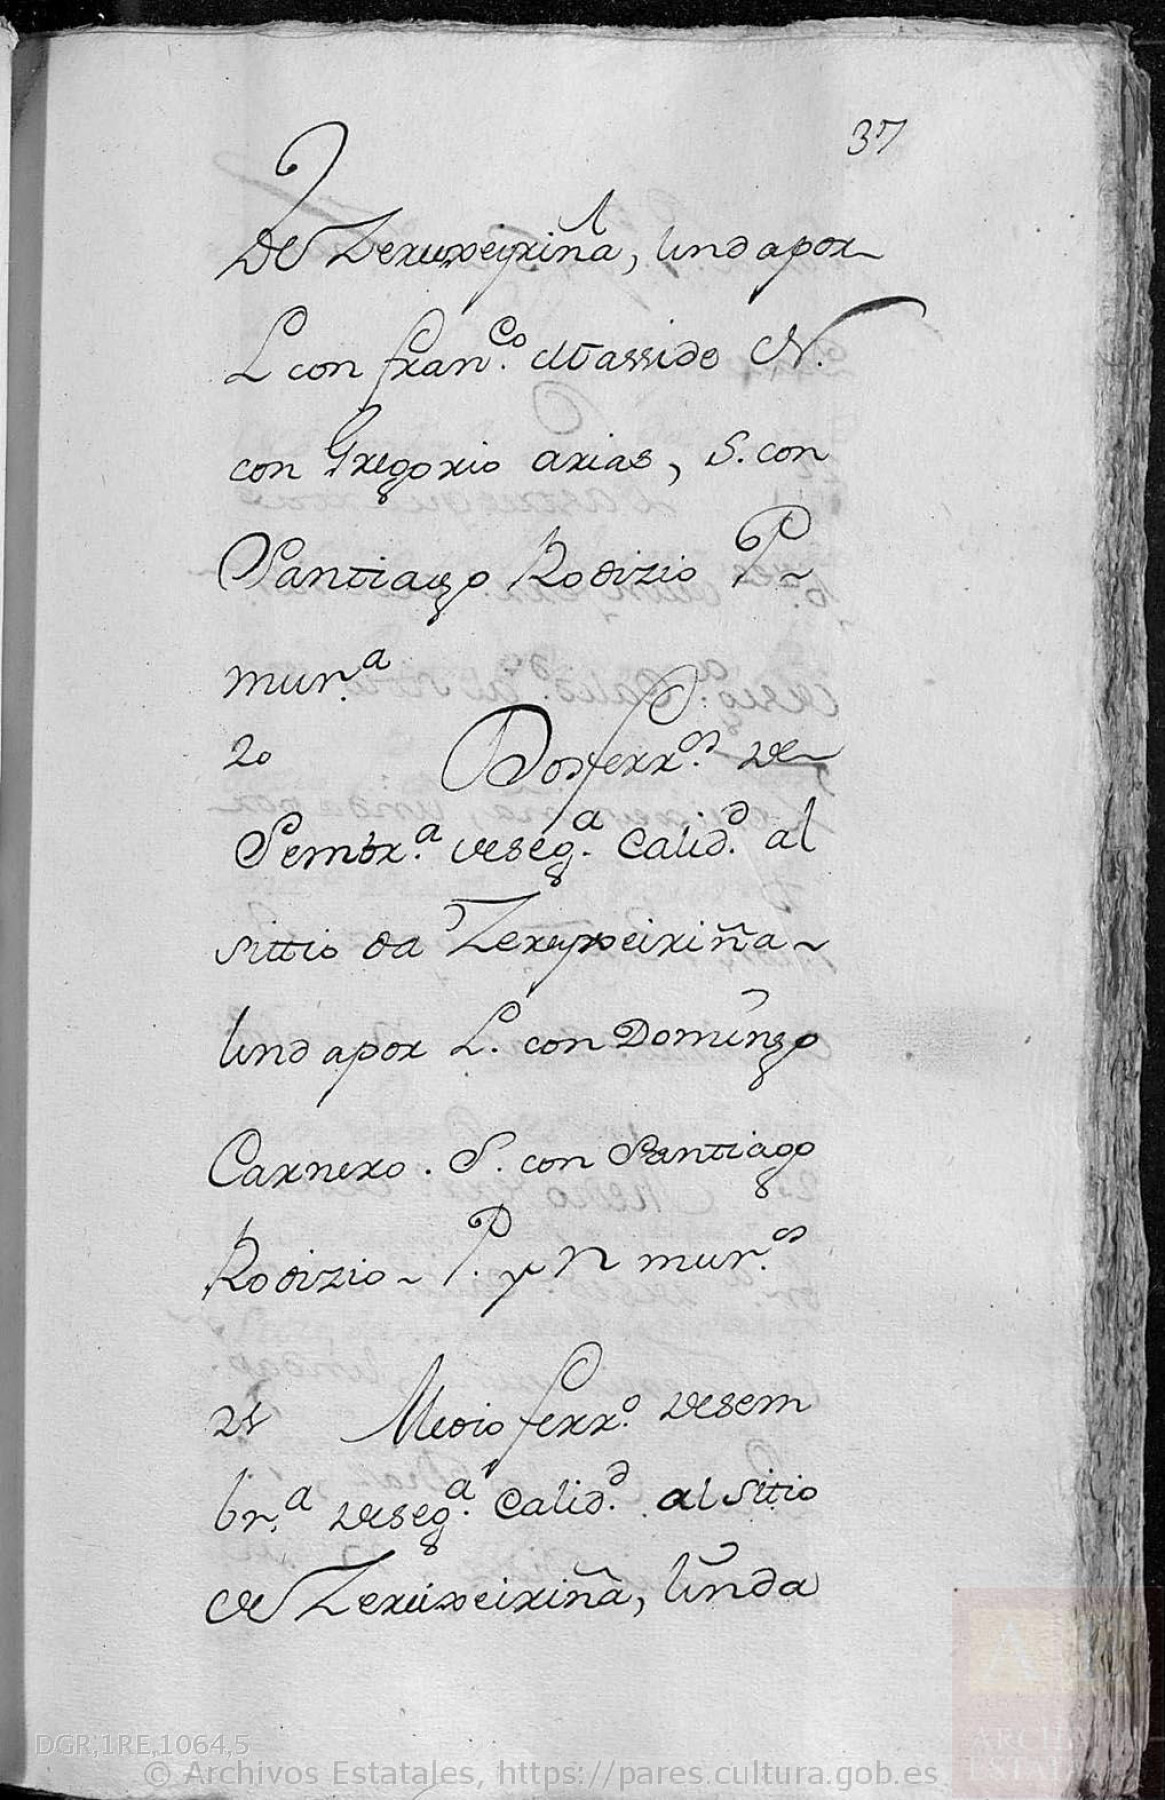 37
De Zerujxeiriña, linda por
L con fran.co Masside N.
con Gregorio arias, S. con
Santiago Rodizio P
mur.a
20 Dos ferr.os de
Sembr.a de seg.a Calid.d al
sittio da Zerujxeiriña
linda por L. con Domingo
Carnero. S. con Santiago
Rodizio P. y N mur.os
21 Medio ferr.o de sem
br.a de seg.a Calid.d al sitio
de Zeruixeiriña, linda
DGR,1RE,1064,5
© Archivos Estatales, https://pares.cultura.gob.es